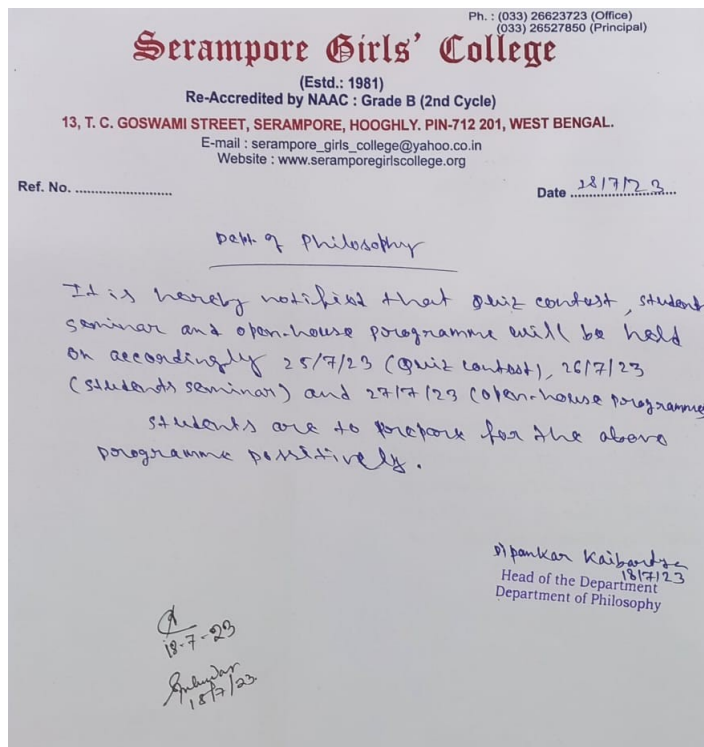 Ph. : (033) 26623723 (Office)
(033) 26527850 (Principal)
Serampore Girls' College
(Estd.: 1981)
Re-Accredited by NAAC : Grade B (2nd Cycle)
13, T. C. GOSWAMI STREET, SERAMPORE, HOOGHLY. PIN-712 201, WEST BENGAL.
E-mail : serampore_girls_college@yahoo.co.in
Website : www.seramporegirlscollege.org
Ref. No. ........................
Date 18/7/23
Dept. of Philosophy
It is hereby notified that Quiz contest, student
seminar and open-house programme will be held
on accordingly 25/7/23 (Quiz contest), 26/7/23
(students seminar) and 27/7/23 (open-house programme
students are to prepare for the above
programme possitively.
Dipankar Kaibartya
18/7/23
Head of the Department
Department of Philosophy
18-7-23
18/7/23